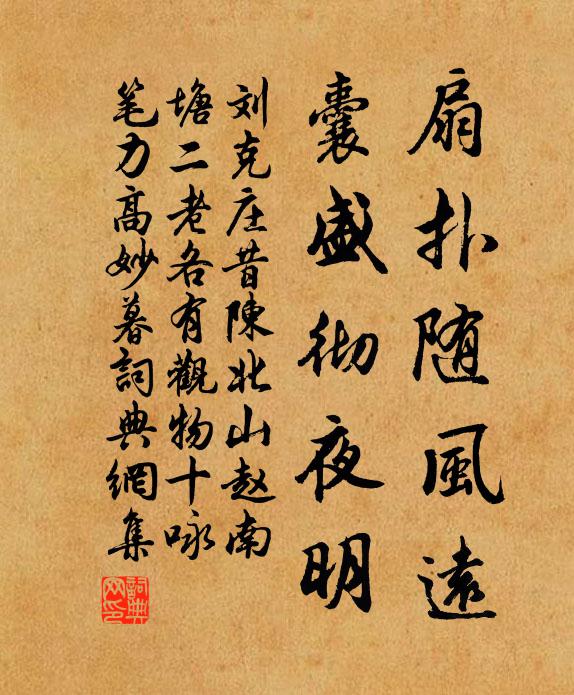 扇扑随風遠
囊盛彻夜明
刘克庄昔陳北山赵南
塘二老各有觀物十咏
笔力高妙暮詞典網集
詞典网印